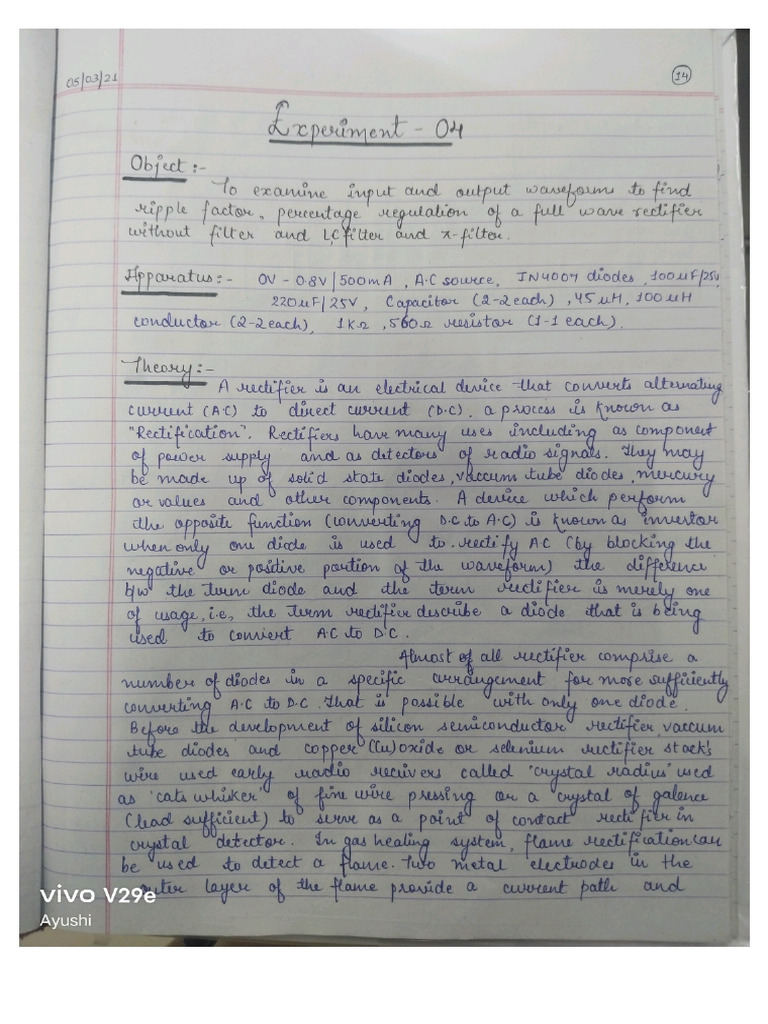 05/03/21
14
Experiment - 04
Object :-
To examine input and output waveforms to find
ripple factor, percentage regulation of a full wave rectifier
without filter and L,C filter and π-filter.
Apparatus :- 0V - 0.8V / 500mA , A.C source, IN4007 diodes, 100uF/25v,
220uF/25V, Capacitor (2-2 each) , 45 uH, 100 uH
conductor (2-2 each), 1KΩ , 560Ω resistor (1-1 each).
Theory :-
A rectifier is an electrical device that converts alternating
current (A.C) to direct current (D.C), a process is known as
"Rectification". Rectifiers have many uses including as component
of power supply and as detectors of radio signals. They may
be made up of solid state diodes, vaccum tube diodes, mercury
or values and other components. A device which perform
the opposite function (converting D.C to A.C) is known as invertor
when only one diode is used to rectify AC (by blocking the
negative or positive portion of the waveform) the difference
b/w the turn diode and the term rectifier is merely one
of usage, i.e, the term rectifier describe a diode that is being
used to convert A.C to D.C.
Almost of all rectifier comprise a
number of diodes in a specific arrangement for more sufficiently
converting A.C to D.C. That is possible with only one diode.
Before the development of silicon semiconductor rectifier, vaccum
tube diodes and copper (Cu) oxide or selenium rectifier stack's
wire used early radio recivers called 'crystal radius' used
as 'cats whisker' of fine wire pressing on a crystal of galence
(lead sufficient) to serve as a point of contact rectifier in
crystal detector. In gas healing system, flame rectification can
be used to detect a flame. Two metal electrodes in the
outer layer of the flame provide a current path and
vivo V29e
Ayushi